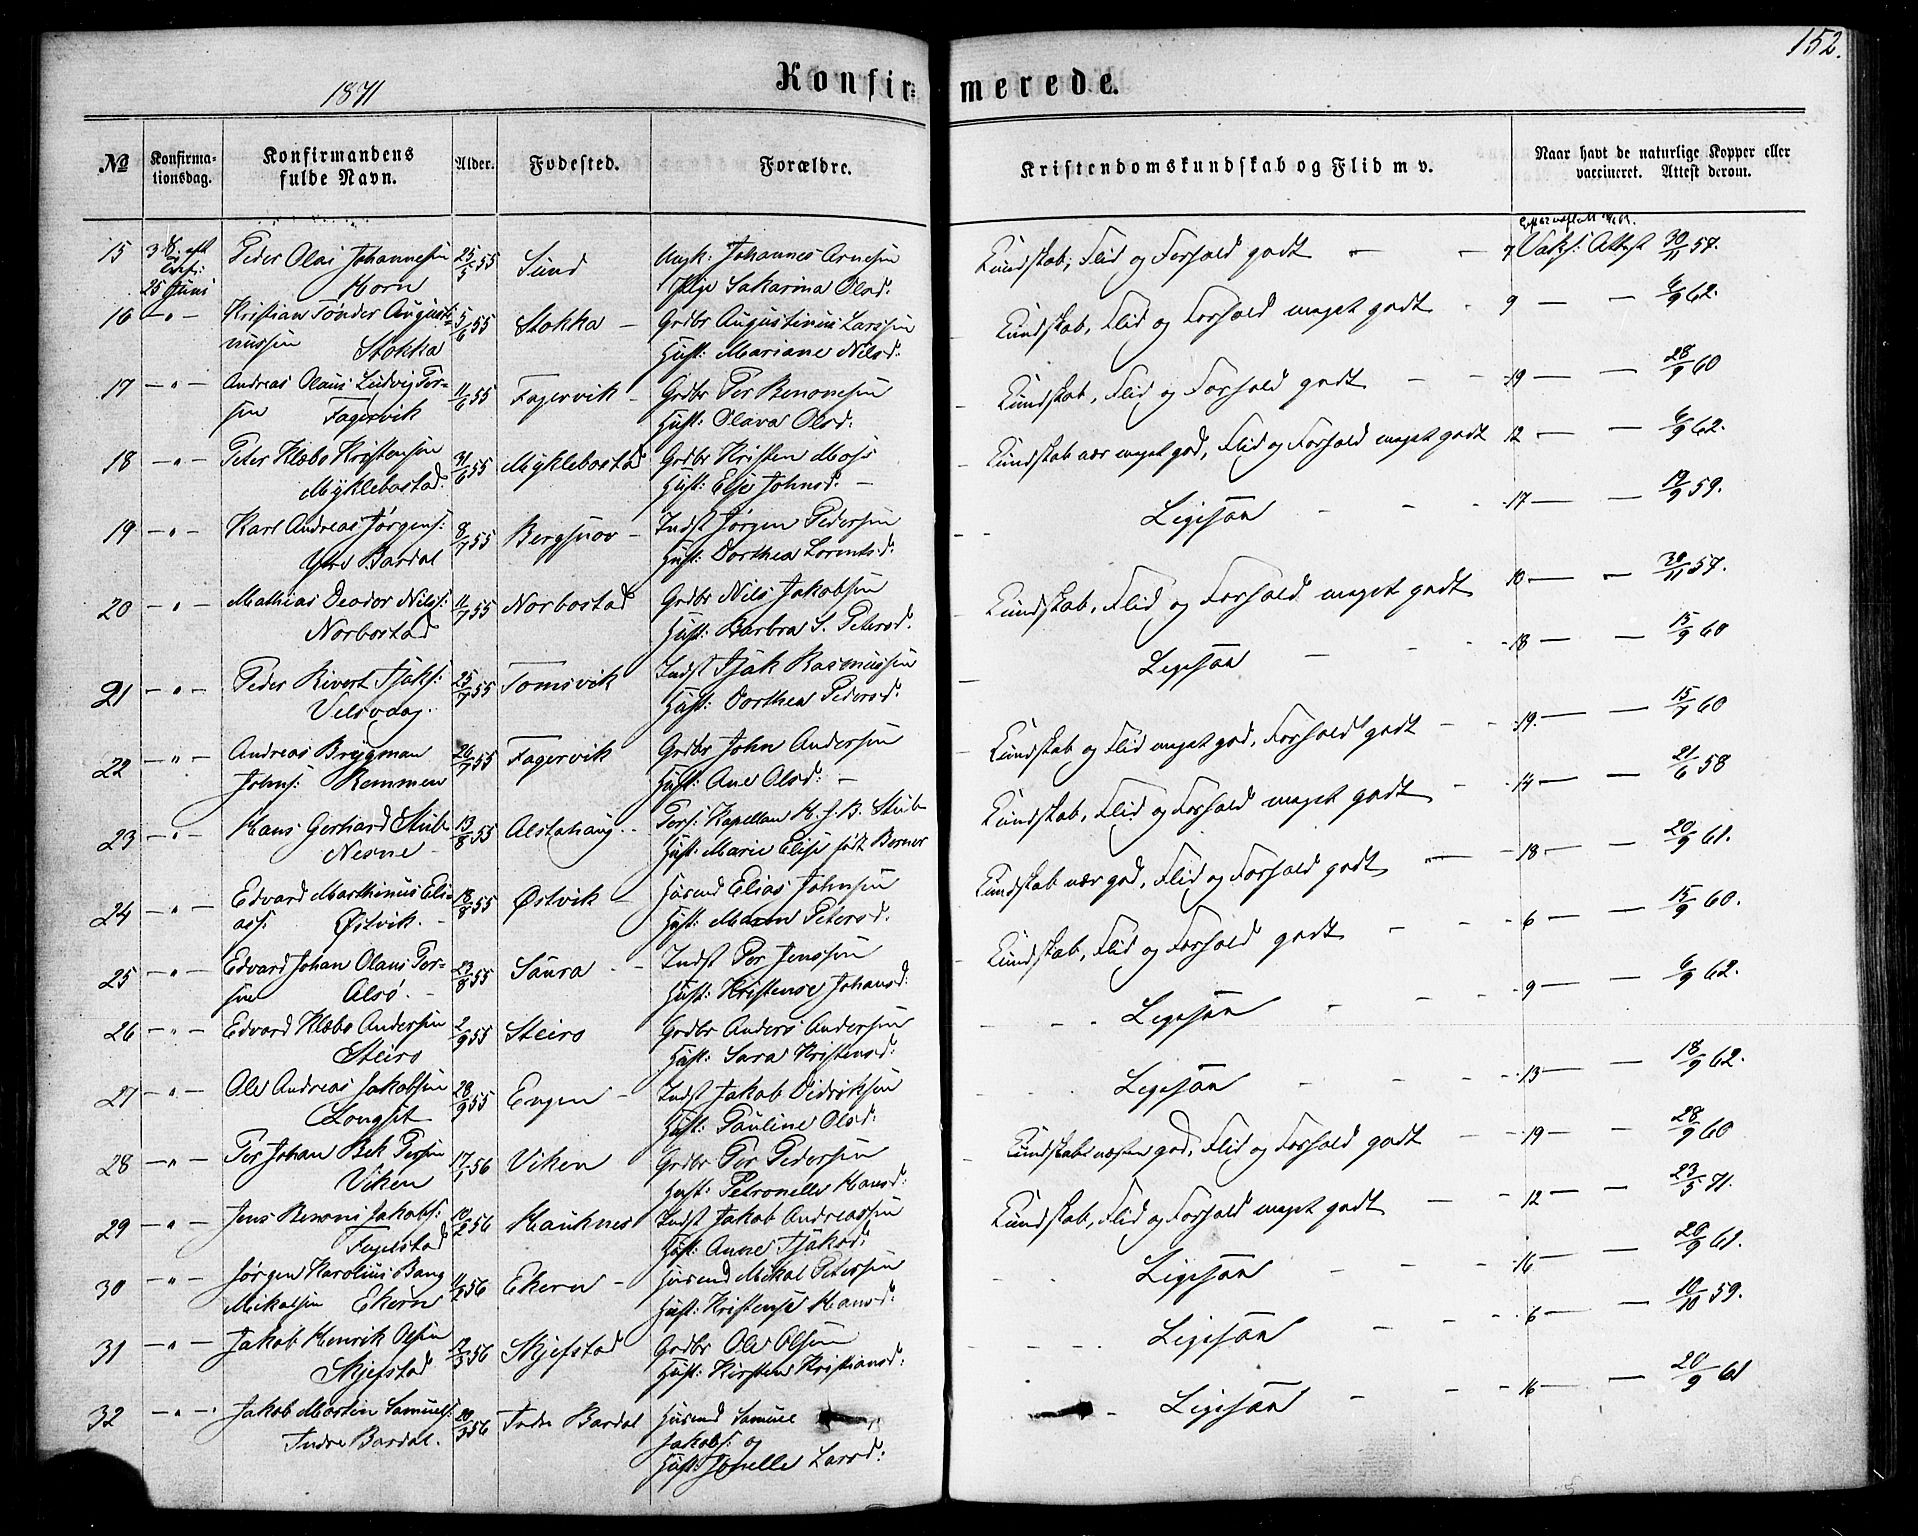 152.
1871
Konfir=
merede.
No
Konfirma-
tionsdag.
Konfirmandens
fulde Navn.
Alder.
Fødested.
Forældre.
Kristendomskundskab og Flid m v.
Naar havt de naturlige Kopper eller
vaccineret. Attest derom.
15 Peder Olai Johannesen 25/5 55 Sund Ungk: Johannes Arnesen Kundskab, Flid og Forhold godt 7 Vaks: Attest 30/11 57.
25 Juni Horn Pige Sakarina Olsd:
16 -"- Kristian Tønder Augusti= 5/6 55 Stokka Grdbr Augustinus Larssen Kundskab, Flid og Forhold meget godt 9 — — 6/9 62.
nussen Stokka Hust: Mariane Nilsd:
17 -"- Andreas Olaus Ludvig Per= 11/6 55 Fagervik Grdbr Per Benonesen Kundskab, Flid og Forhold godt 19 — — 28/9 60
sen Fagervik Hust: Olava Olsd:
18 -"- Peter Klæbo Kristensen 21/6 55 Myklebostad Grdbr Kristen Moss Kundskab nær meget god, Flid og Forhold meget godt 12 — — 6/9 62.
Myklebostad. Hust: Else Johnsd.
19 -"- Karl Andreas Jørgens: 8/7 55 Bergsnov Indst Jørgen Pedersen Ligesaa 17 — — 19/9 59.
Ytre Bardal Hust: Dorthea Lorentsd:
20 -"- Mathias Deodor Nilss: 11/7 55 Norbostad Grdbr Nils Jakobsen Kundskab, Flid og Forhold meget godt 10 — — 30/11 57.
Norbostad Hust: Barbra S. Petersd.
21 -"- Peder Rivert Isaks: 25/7 55 Tomsvik Indst Isak Rasmussen Ligesaa 18 — — 15/9 60
Velsvaag. Hust: Dorthea Pedersd:
22 -"- Andreas Brygman 26/7 55 Fagervik Grdbr John Andersen Kundskab og Flid meget god, Forhold godt 19. — — 15/7 60
Johns: Remmen Hust: Ane Olsd:
23 -"- Hans Gerhard Stub 13/8 55 Alstahaug Pers: Kapellan H. J. B. Stub Kundskab, Flid og Forhold meget godt 14 — — 21/6 58
Nesne Hust: Marie Elise født Berner
24 -"- Edvard Marthinus Eli= 18/8 55 Østvik Husmd Elias Johnsen Kundskab nær god, Flid og Forhold godt 18 — — 20/9 61.
ass: Østvik. Hust: Maren Petersd.
25 -"- Edvard Johan Olaus Per= 27/8 55 Saura Indst Per Jenssen Kundskab, Flid og Forhold godt 6 — — 15/9 60.
sen Alsø. Hust: Kristense Johansd:
26 -"- Edvard Klæbo Andersen 2/9 55 Steiro Grdbr Anders Andersen Ligesaa 9 — — 6/9 62.
Steiro Hust: Sara Kristensd:
27 -"- Ole Andreas Jakobsen 28/9 55 Engen Indst Jakob Didriksen Ligesaa 13 — — 18/9 62.
Longset Hust: Pauline Olsd:
28 -"- Per Johan Bek Persen 17/1 56 Viken Grdbr Per Pedersen Kundskab næsten god, Flid og Forhold godt 19 — — 28/9 60
Viken Hust: Petronelle Hansd:
29 -"- Jens Benoni Jakobs: 10/2 56 Hauknes Indst Jakob Andreassen Kundskab, Flid og Forhold meget godt 12 — — 23/5 71.
Fagelstad Hust: Anne Isaksd:
30 -"- Jørgen Karolius Bang 11/2 56 Ekern Husmd Mikal Petersen Ligesaa 16 — — 20/9 61.
Mikalsen Ekern Hust: Kristense Hansd:
31 -"- Jakob Henrik Olsen 12/3 56 Skjefstad Grdbr Ole Olsen Ligesaa 6 — — 10/10 59.
Skjefstad Hust: Kirsten Kristiansd:
32 -"- Jakob Martin Samuels: 20/3 56 Indre Bardal Husmd Samuel Ligesaa 16 — — 20/9 61
Indre Bardal. Jakobs: og
Hust: Jonelle Larsd: